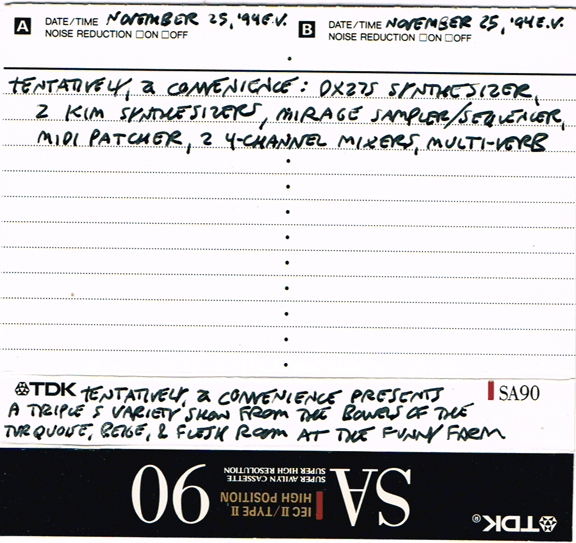 A DATE/TIME NOVEMBER 25, '94 E.V.
NOISE REDUCTION □ON □OFF
B DATE/TIME NOVEMBER 25, '94 E.V.
NOISE REDUCTION □ON □OFF
TENTATIVELY, A CONVENIENCE: DX27S SYNTHESIZER,
2 KIM SYNTHESIZERS, MIRAGE SAMPLER/SEQUENCER,
MIDI PATCHER, 2 4-CHANNEL MIXERS, MULTI-VERB
TDK TENTATIVELY, A CONVENIENCE PRESENTS
SA90
A TRIPLE S VARIETY SHOW FROM THE BOWELS OF THE
TURQUOISE, BEIGE, & FLESH ROOM AT THE FUNNY FARM
TDK®
SA
IEC II/TYPE II
HIGH POSITION
SUPER AVILYN CASSETTE
SUPER HIGH RESOLUTION
90